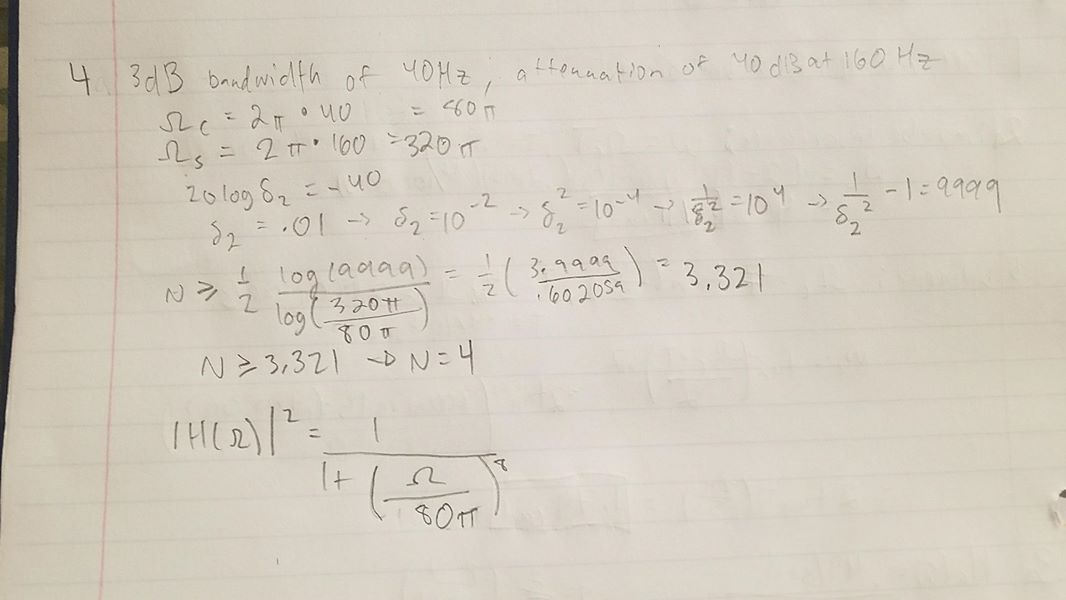 4 3dB bandwidth of 40Hz, attenuation of 40dB at 160Hz
Ωc = 2π • 40 = 80π
Ωs = 2π • 160 = 320π
20 log δ₂ = -40
δ₂ = .01 → δ₂ = 10⁻² → δ₂² = 10⁻⁴ → 1/δ₂² = 10⁴ → 1/δ₂² - 1 = 9999
N ≥ 1/2 log(9999)/log(320π/80π) = 1/2 (3.9999/.602059) = 3.321
N ≥ 3.321 → N = 4
|H(Ω)|² = 1/(1+(Ω/80π)⁸)